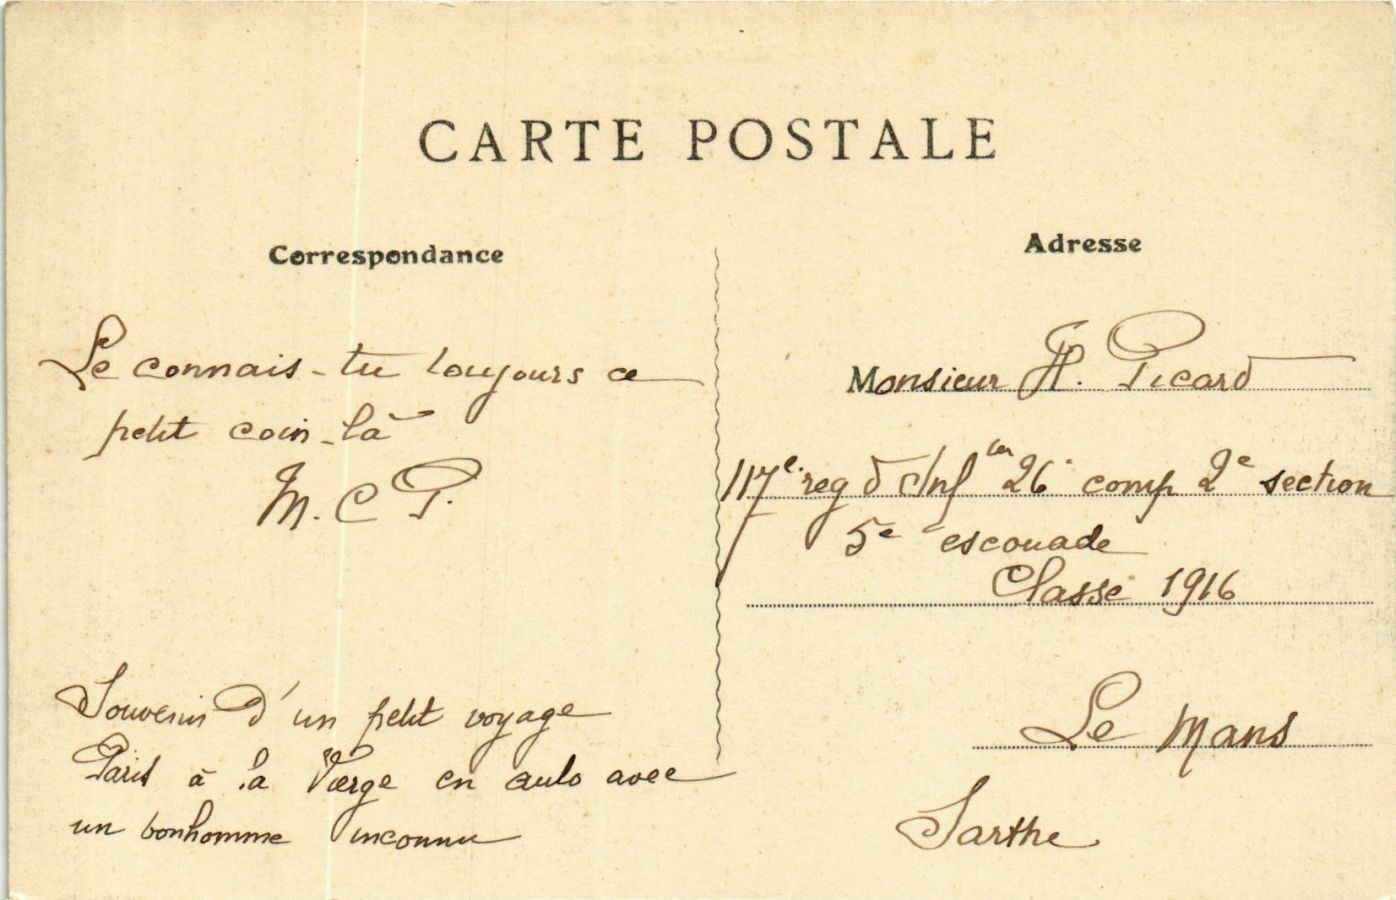 CARTE POSTALE
Correspondance
Le connais-tu toujours ce
petit coin-là
M. C P.
Souvenir d'un petit voyage
Paris à la Vierge en auto avec
un bonhomme inconnu
Adresse
Monsieur H. Picard
117e reg d'Inf 26e comp 2e section
5e escouade
Classe 1916
Le Mans
Sarthe